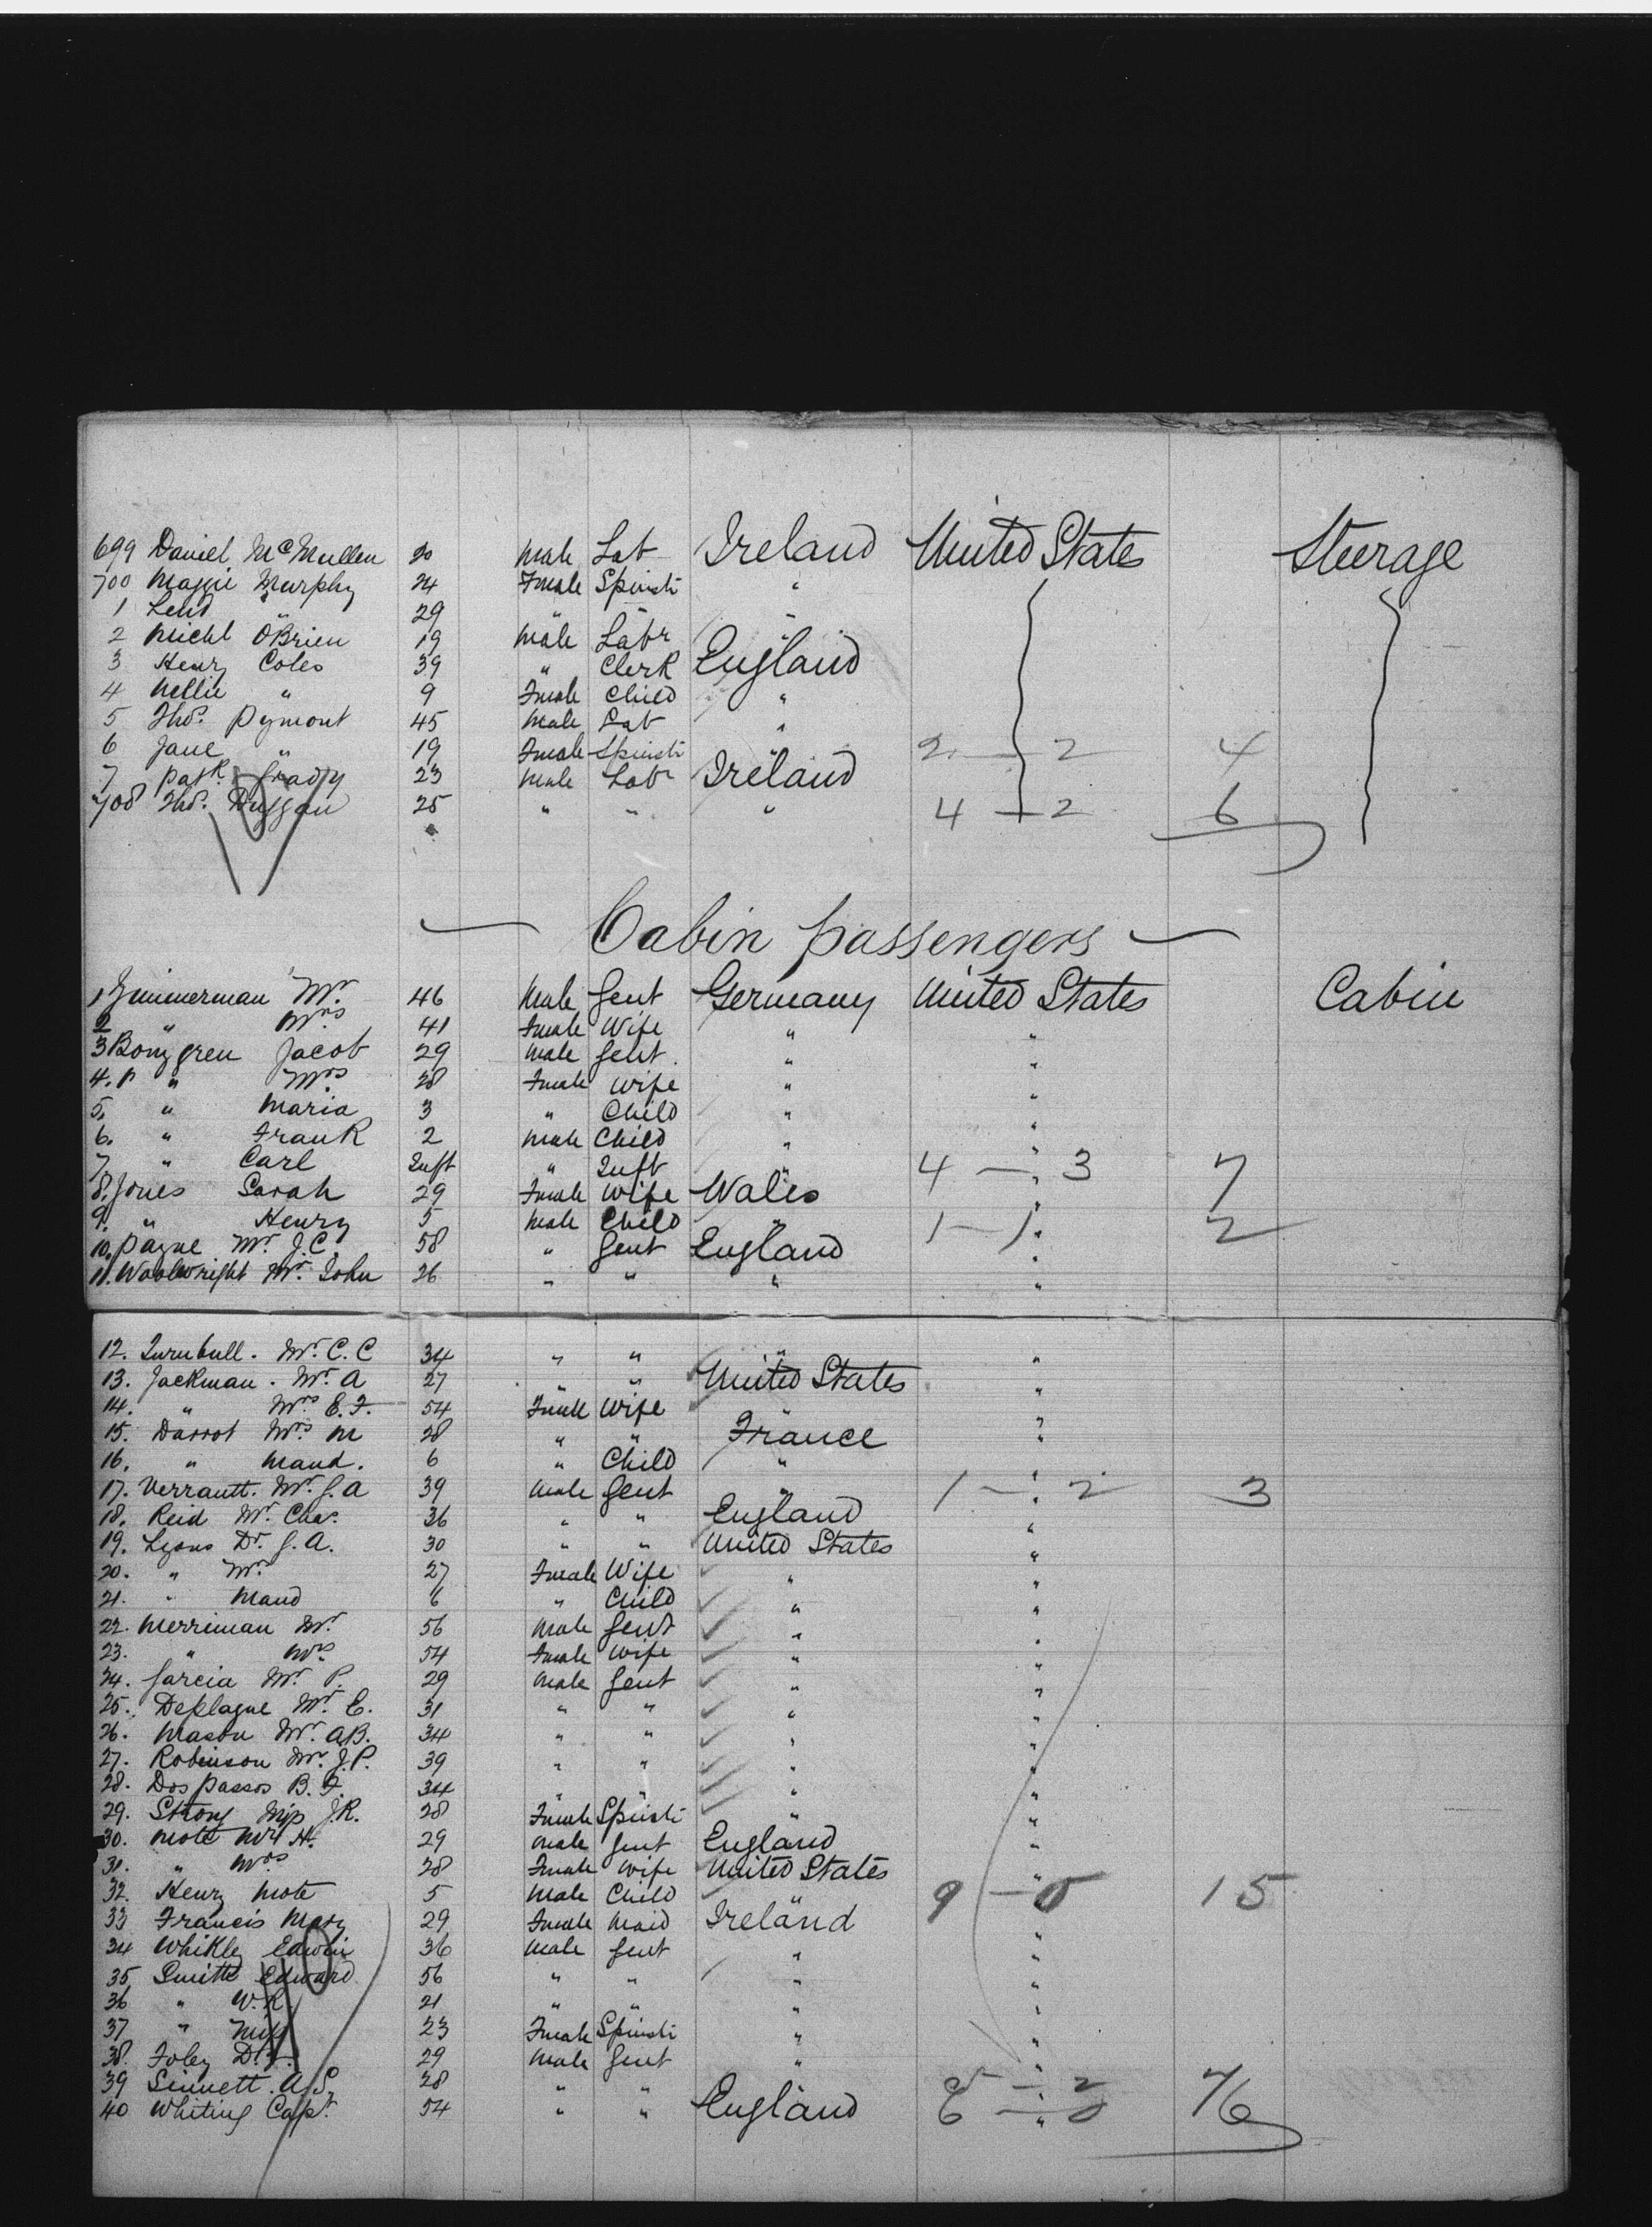 699 Daniel McMullen 20 Male Lab Ireland United States Steerage
700 Maggie Murphy 24 Fmale Spinstr "
1 " 29 " " "
2 Michl O'Brien 19 Male Labr "
3 Henry Coles 39 " Clerk England
4 Nellie " 9 Fmale Child "
5 Thos. Pymont 45 Male Lab "
6 Jane " 19 Fmale Spinstr " 2 — 2 4
7 Patk. Grady 23 Male Labr Ireland
708 Thos. Duggan 25 " " " 4 — 2 6
Cabin passengers
1 Zimmerman Mr. 46 Male Gent Germany United States Cabin
2 " Mrs 41 Fmale Wife " "
3 Bomgren Jacob 29 Male Gent. " "
4. " Mrs 28 Fmale Wife " "
5. " Maria 3 " Child " "
6. " Frank 2 Male Child " "
7 " Carl Inft " Inft " " 4 — 3 7
8. Jones Sarah 29 Fmale Wife Wales "
9. " Henry 5 Male Child " " 1 — 1 2
10. Payne Mr. J.C. 58 " Gent England "
11. Woolwright Mr. John 26 " " " "
12. Turnbull. Mr. C. C 34 " " " "
13. Jackman. Mr. A 27 " " United States "
14. " Mrs. E. F. 54 Fmale Wife "
15. Darrot Mrs. M 28 " " France "
16. " Maud. 6 " Child " "
17. Mr. G. A 39 Male Gent " " 1 — 2 3
18. Reid Mr. Chas. 36 " " England "
19. Lyons Dr. G. A. 30 " " United States "
20. " Mrs 27 Fmale Wife " "
21. " Maud 6 " Child " "
22. Merriman Mr. 56 Male Gent " "
23. " Mrs. 54 Fmale Wife " "
24. Garcia Mr. P. 29 Male Gent " "
25. Deplague Mr. E. 31 " " " "
26. Mason Mr. A.B. 34 " " " "
27. Robinson Mr. J. P. 39 " " " "
28. Dos Passos B. F. 34 " " " "
29. Strong Miss J.R. 28 Fmale Spinstr " "
30. Mote Mr H. 29 Male Gent England "
31. " Mrs 28 Fmale Wife United States "
32. Henry Mote 5 Male Child " 9 15
33 Francis Mary 29 Fmale Maid Ireland "
34 Edwin 36 Male Gent " "
35 Smith Edward 56 " " " "
36 " W.R. 21 " " " "
37 " Miss 23 Fmale Spinstr " "
38. Foley D. 29 Male Gent " "
39 Sinnett. A. S. 28 " " " — 2
40 Whiting Capt. 54 " " England "